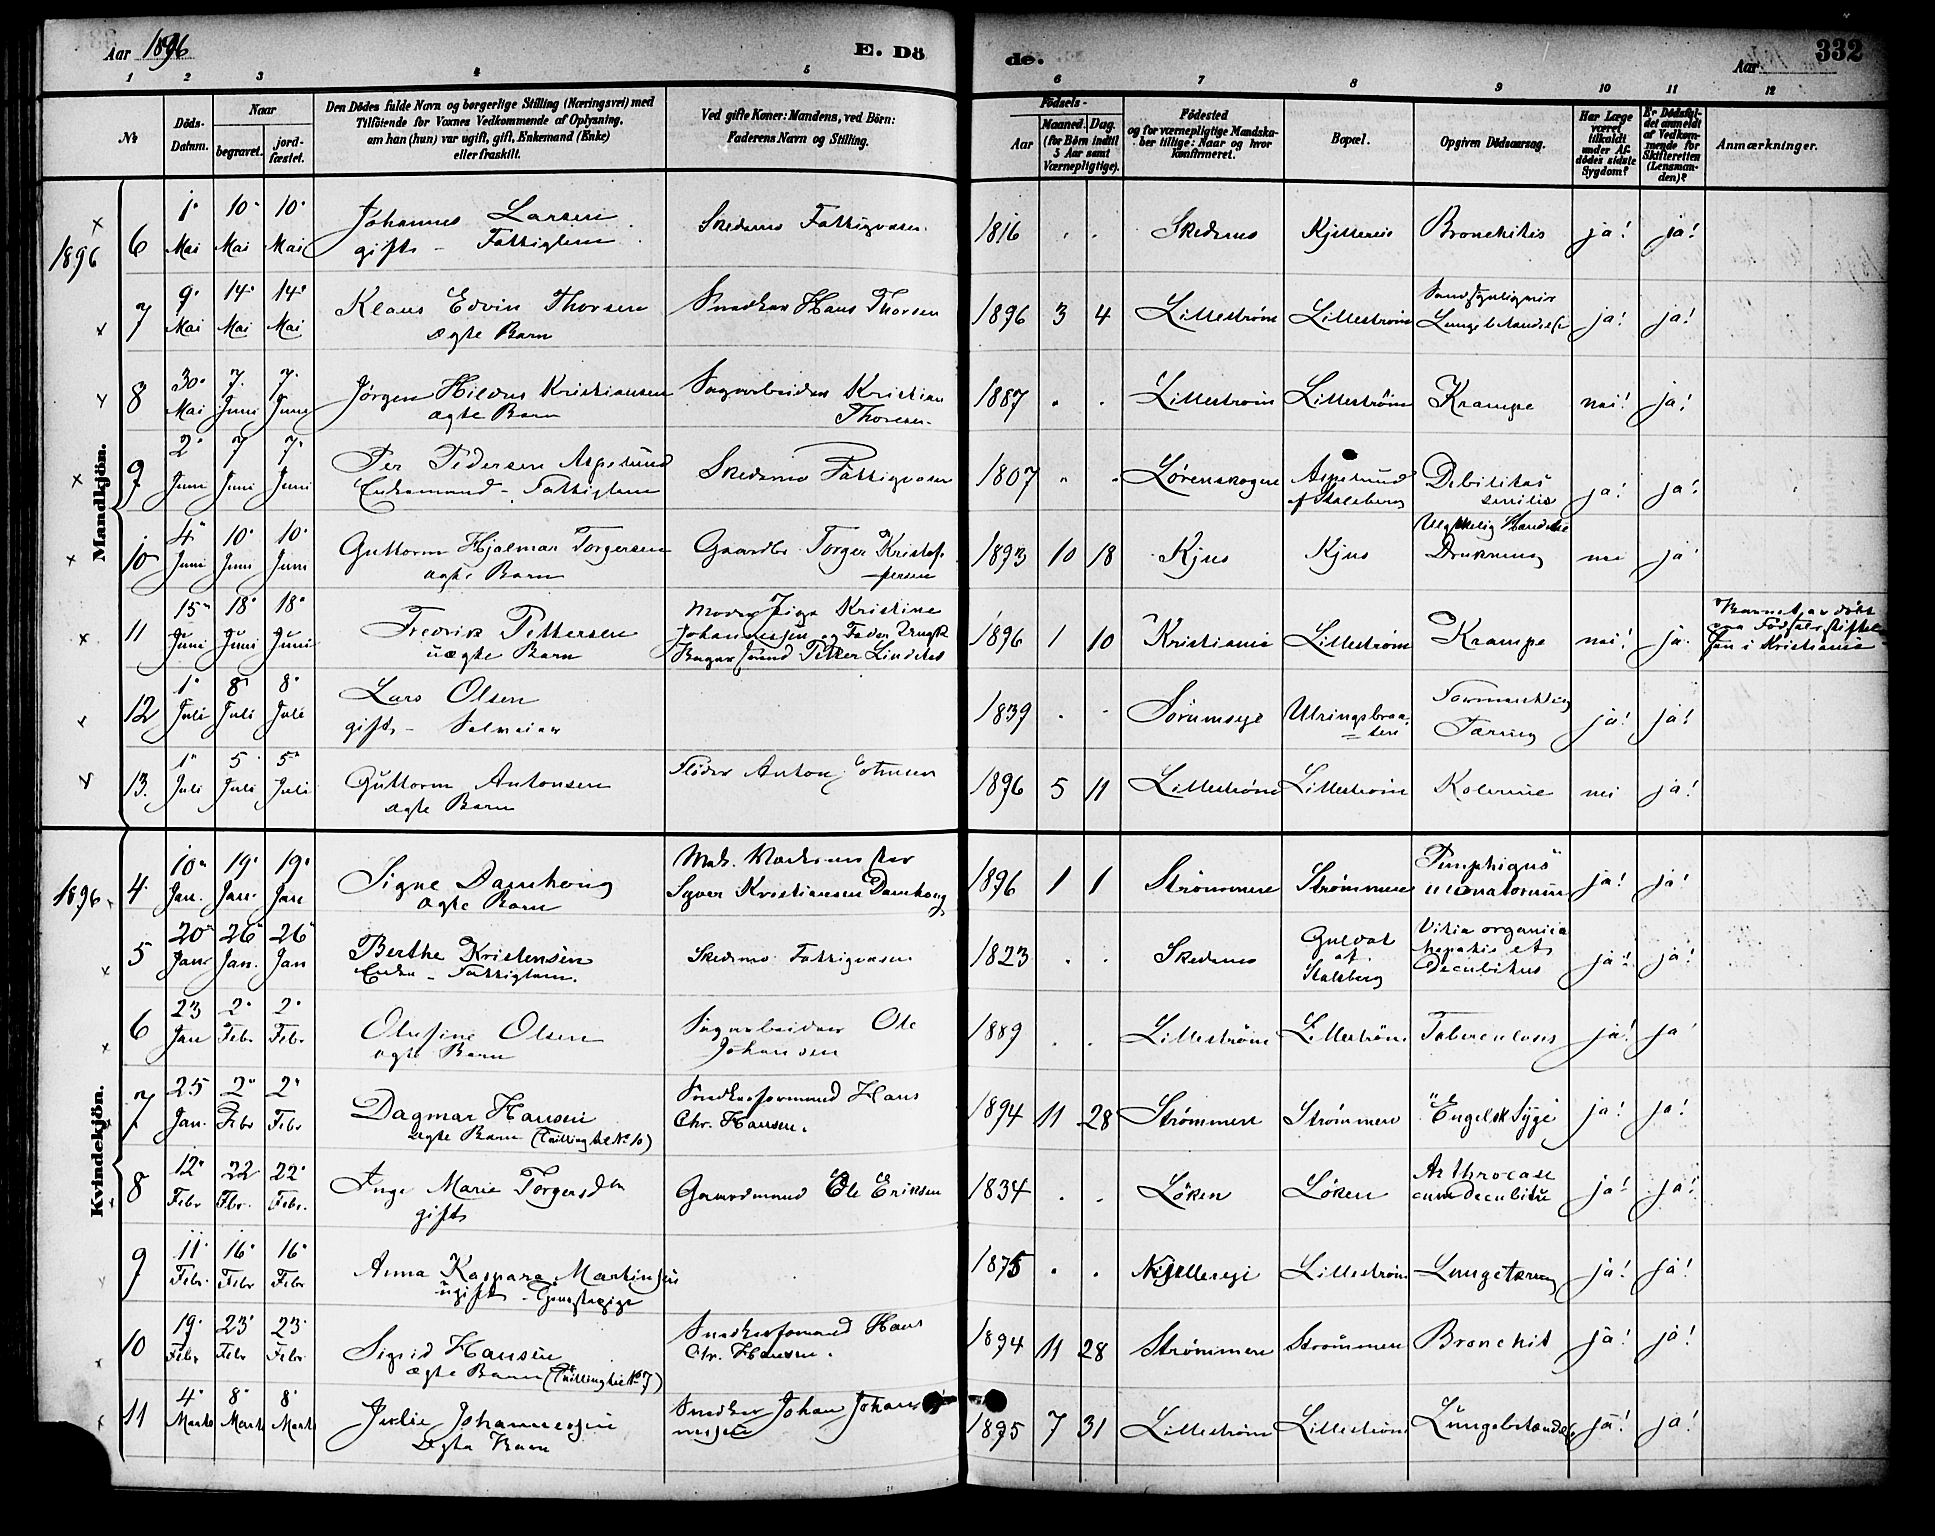 Aar 1896
E. Dö
de.
Aar
332
1 2 3 4 5 6 7 8 9 10 11 12
No
Döds-Datum.
Naar
begravet.
jord-fæstet.
Den Dödes fulde Navn og borgerlige Stilling (Næringsvei) med
Tilföiende for Voxnes Vedkommende af Oplysning,
om han (hun) var ugift, gift, Enkemand (Enke)
eller fraskilt.
Ved gifte Koner: Mandens, ved Börn:
Faderens Navn og Stilling.
Födsels-
Aar
Maaned. Dag.
(for Börn indtil
5 Aar samt
Værnepligtige).
Födested
og for værnepligtige Mandska-
ber tillige: Naar og hvor
konfirmeret.
Bopæl.
Opgiven Dödsaarsag.
Har Læge
været
tilkaldt
under Af-
dödes sidste
Sygdom?
Er Dödsfal-
det anmeldt
af Vedkom-
mende for
Skifteretten
(Lensman-
den)?
Anmærkninger.
Mandkjön.
1896
6 1. Mai 10. Mai 10. Mai Johannes Larsen
gift - Fattiglem
Skedsmo Fattigvæsen
1816 Skedsmo Bronchitis ja! ja!
7 9. Mai 14. Mai 14. Mai Klaus Edvin Thorsen
ægte Barn
Snedker Hans Thorsen
1896 3 4 Lillestrøm Lillestrøm ja! ja!
8 30. Mai 7. Juni 7. Juni Jörgen Kristiansen
ægte Barn
Sagarbeider Kristian
Thoresen
1887 Lillestrøm Lillestrøm Krampe nei! ja!
9 2. Juni 7 Juni 7. Juni Per Pedersen Aspelund
Enkemand - Fattiglem
Skedsmo Fattigvæsen
1807 Lørenskogen Aspelund
af Stalsberg
Debilitas
senilis
ja! ja!
10 4. Juni 10. Juni 10. Juni Guttorm Hjalmar Torgersen
ægte Barn
Gaardbr. Torger Kristof-
fersen
1893 10 18 Kjus Kjus Ulykkelig Hændelse
Drukning
nei ja
11 15. Juni 18. Juni 18. Juni Fredrik Pettersen
uægte Barn
Moder Pige Kristine
Johannessen og Fader Ungk
Bagersvend Petter Lindblad
1896 1 10 Kristiania Lillestrøm Krampe nei! ja.
Barnet er døbt
paa Fødselsstiftel-
sen i Kristiania
12 1. Juli 8. Juli 8. Juli Lars Olsen
gift - Selveier
1839 Sørumsogn ja! ja!
Tæring
13. 1. Juli 5. Juli 5. Juli Guttorm Antonsen
ægte Barn
Fløder Anton
1896 5 11 Lillestrøm Lillestrøm Kolerine nei ja!
Kvindekjön.
1896
4. 10. Jan. 19. Jan. 19. Jan Signe Damhoug
ægte Barn
Mek. Værksmester
Syver Kristiansen Damhoug
1896 1 1 Strømmen Strømmen Pemphigus
neonatorum
ja! ja!
5 20. Jan 26. Jan. 26. Jan Berthe Kristensen
Enke - Fattiglem.
Skedsmo Fattigvæsen
1823 Skedsmo
af
Stalsberg
Vitia organica
hepatis et
decubitus
ja! ja!
6 23 Jan 2. Febr 2. Febr Olufine Olsen
ægte Barn
Sagarbeider Ole
Johansen
1889 Lillestrøm Lillestrøm Tuberculosis ja! ja
7 25 Jan. 2. Febr 2. Febr Dagmar Hansen
ægte Barn (Tvilling til No 10)
Snedkerformand Hans
Chr. Hansen.
1894 11 28 Strømmen Strømmen Engelsk Syge ja! ja!
8 12. Febr 22 Febr. 22. Febr. Inge Marie Torgersdtr
gift
Gaardmand Ole Eriksen
1834 Løken Løken Arthrocase
cum decubitu
ja! ja!
9 11. Febr. 16. Febr 16. Febr Anna Kaspara Martinsen
ugift - Tjenestepige
1875 Lillestrøm Lungetæring ja! ja!
10 19. Febr 23. Febr 23. Febr. Sigrid Hansen
ægte Barn (Tvilling til No 7)
Snedkerformand Hans
Chr. Hansen.
1894 11 28 Strømmen Strømmen Bronchit ja! ja!
11 4. Marts 8. Marts 8. Marts Julie Johannessen
Ægte Barn
Snedker Johan Johan-
nesen
1895 7 31 Lillestrøm Lillestrøm Lungebetændelse ja! ja!